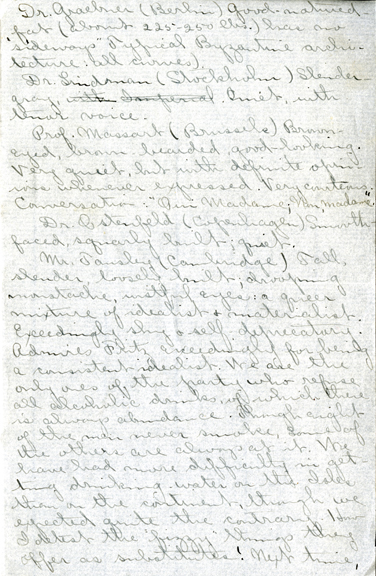 Dr. Graebner (Berlin) Good-natured
fat (about 225-250 lbs.) has no
"sideways" Typical Byzantine archi-
tecture. (all curves),
Dr. Lindman (Stockholm) Slender
gray, with Imperial. Quiet, with
tenor voice.
Prof. Massart (Brussels) Brown-
eyed, brown bearded, good-looking.
Very quiet, but with definite opin-
ions whenever expressed. Very
Conversation. "Oui Madame, Non madame"
Dr. Ostenfeld (Copenhagen) Smooth-
faced, squarely built, quiet.
Mr. Tansley (Cambridge) Tall,
slender, loosely built, drooping
moustache, wistful eyes; a queer
mixture of idealist & materialist.
Exceedingly shy & self-deprecatory.
Admires Fritz exceedingly for being
a consistent idealist. We are the
only ones of the party who refuse
all alcoholic drinks, of which there
is always abundance. Though eight
of the men never smoke, some of
the others are always at it. We
have had more difficulty in get-
ting drinking water on the Isles
than on the continent, though we
expected quite the contrary. How
I detest the "fuzzy" things they
offer as substitutes! Next time,